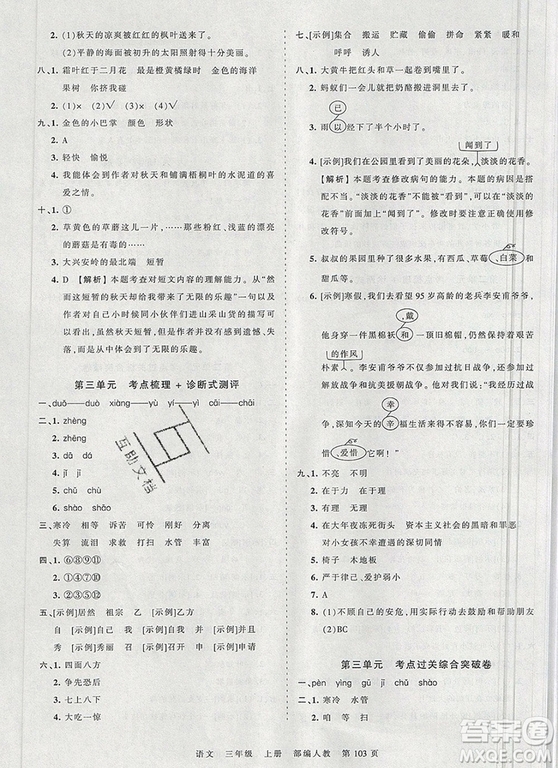 5. 1. (1)秋天的凉爽被红红的枫叶送来了。
(2)平静的海面被初升的太阳照射得光亮无比。
八、1. 霜叶红于二月花 最是橙黄橘绿时 金色的海洋
果树 你挤我碰
2. (1)× (2)√ (3)×
九、1. 金色的小巴掌 颜色 形状
2. A
3. 轻快 愉悦
4. 我能体会到作者对秋天和铺满梧桐叶的水泥道的喜
爱之情!
十、1. ①
2. 草黄色的草蘑这儿一片,……那些粉红、浅蓝的漂亮
的蘑菇都是有毒的。
3. 大兴安岭的最北端 短暂
4. D 【解析】本题考查对短文内容的理解能力。从“然
而这短暂的秋天却给我带来了无穷的乐趣”以及作
者对自己小时候同小伙伴们进山采山货的描写可以
看出,虽然秋天短暂,但作者对此并没有感到遗憾、失
落,有的是无尽的乐趣。
第三单元 考点梳理 + 诊断式测评
一、duǒ——duò xiàng——yù yí——yī cāi——chāi
二、1. zhēng
2. zhèng
3. dà dǎ
4. jǐ jì
5. chǔ chù
6. shào zhào
三、寒冷 相等 诉苦 可怜 刚好 分离
失算 流泪 担心 火柴 水管
四、1. ⑥⑧⑨⑪
2. ①④⑦⑩
3. ②③⑤⑫
五、[示例]居然 祖宗 乙 [示例]乙方
自 [示例]自己 我 [示例]我并 并 [示例]并且
秀 [示例]秀丽 召 [示例]召开 申 [示例]申请
六、1. 四面八方
2. 争先恐后
3. 七上八下
4. 大吃一惊
七、[示例]集合 搬运 贮藏 偷偷 拼命 紧紧 暖和
呼呼 诱人
八、1. 大黄牛把红头和草一起卷到嘴里了。
2. 蚂蚁们一会儿便把奶酪搬进洞里去了。
已
3. 雨以经下了半个小时了。
闻到了
4. [示例]我们在公园里看到了美丽的花朵,淡淡的花香。
【解析】本题考查修改病句的能力。本题的病因是搭
配不当。“淡淡的花香”不能用“看到了”修饰,可在
“淡淡的花香”前加上“闻到了”。修改时要使用修改
符号。
5. 叔叔的果园里各种水果都有,有西瓜、草莓、白菜和
甜瓜等。
6. [示例]寒假,我们去看望95岁高龄的老兵李安甫爷爷,
戴
他身穿一件黑棉袄,头带一顶灰色的旧棉帽,十分
的作风
朴素。李安甫爷爷参加过抗日战争、解放
战争和抗美援朝战争,一生为中国的革命事业做出了
幸
贡献,深深地感染了我们。我们要珍惜来之不易的辛
福,爱惜美好的生活。
九、1. 不亮 不明
2. 年底 可怕
3. 有理 可理
4. 在大年夜冻死街头 资本主义社会的黑暗和罪恶
对小女孩不幸遭遇的深切同情
5. 椅子 木地板
6. 严于律己、爱护公物
7. (1)不顾自己的安危,用实际行动保护和帮助朋友
(2)BC
第三单元 考点过关综合突破卷
一、pèn yìng gū jì chāi shào
二、1. 寒冷 水管
语文 三年级 上册 部编人教 第 103 页
互助文档